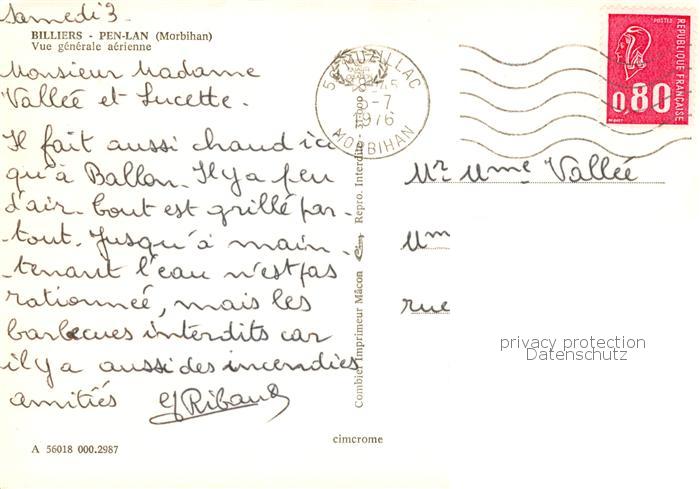 Samedi 3.
BILLIERS - PEN-LAN (Morbihan)
Vue générale aérienne
Monsieur Madame
Vallée et Lucette.
Il fait aussi chaud ici
qu'à Ballon. Il y a peu
d'air. tout est grillé par-
-tout. Jusqu'à main-
-tenant l'eau n'est pas
rationneé, mais les
barbecues interdits car
il y a aussi des incendies
amitiés
A 56018 000.2987
Combier Imprimeur Mâcon Cim Repro. Interdite
cimcrome
56 MUZILLAC
5-7
1976
MORBIHAN
POSTES
REPUBLIQUE FRANÇAISE
0,80
Mr Mme Vallée
rue
privacy protection
Datenschutz